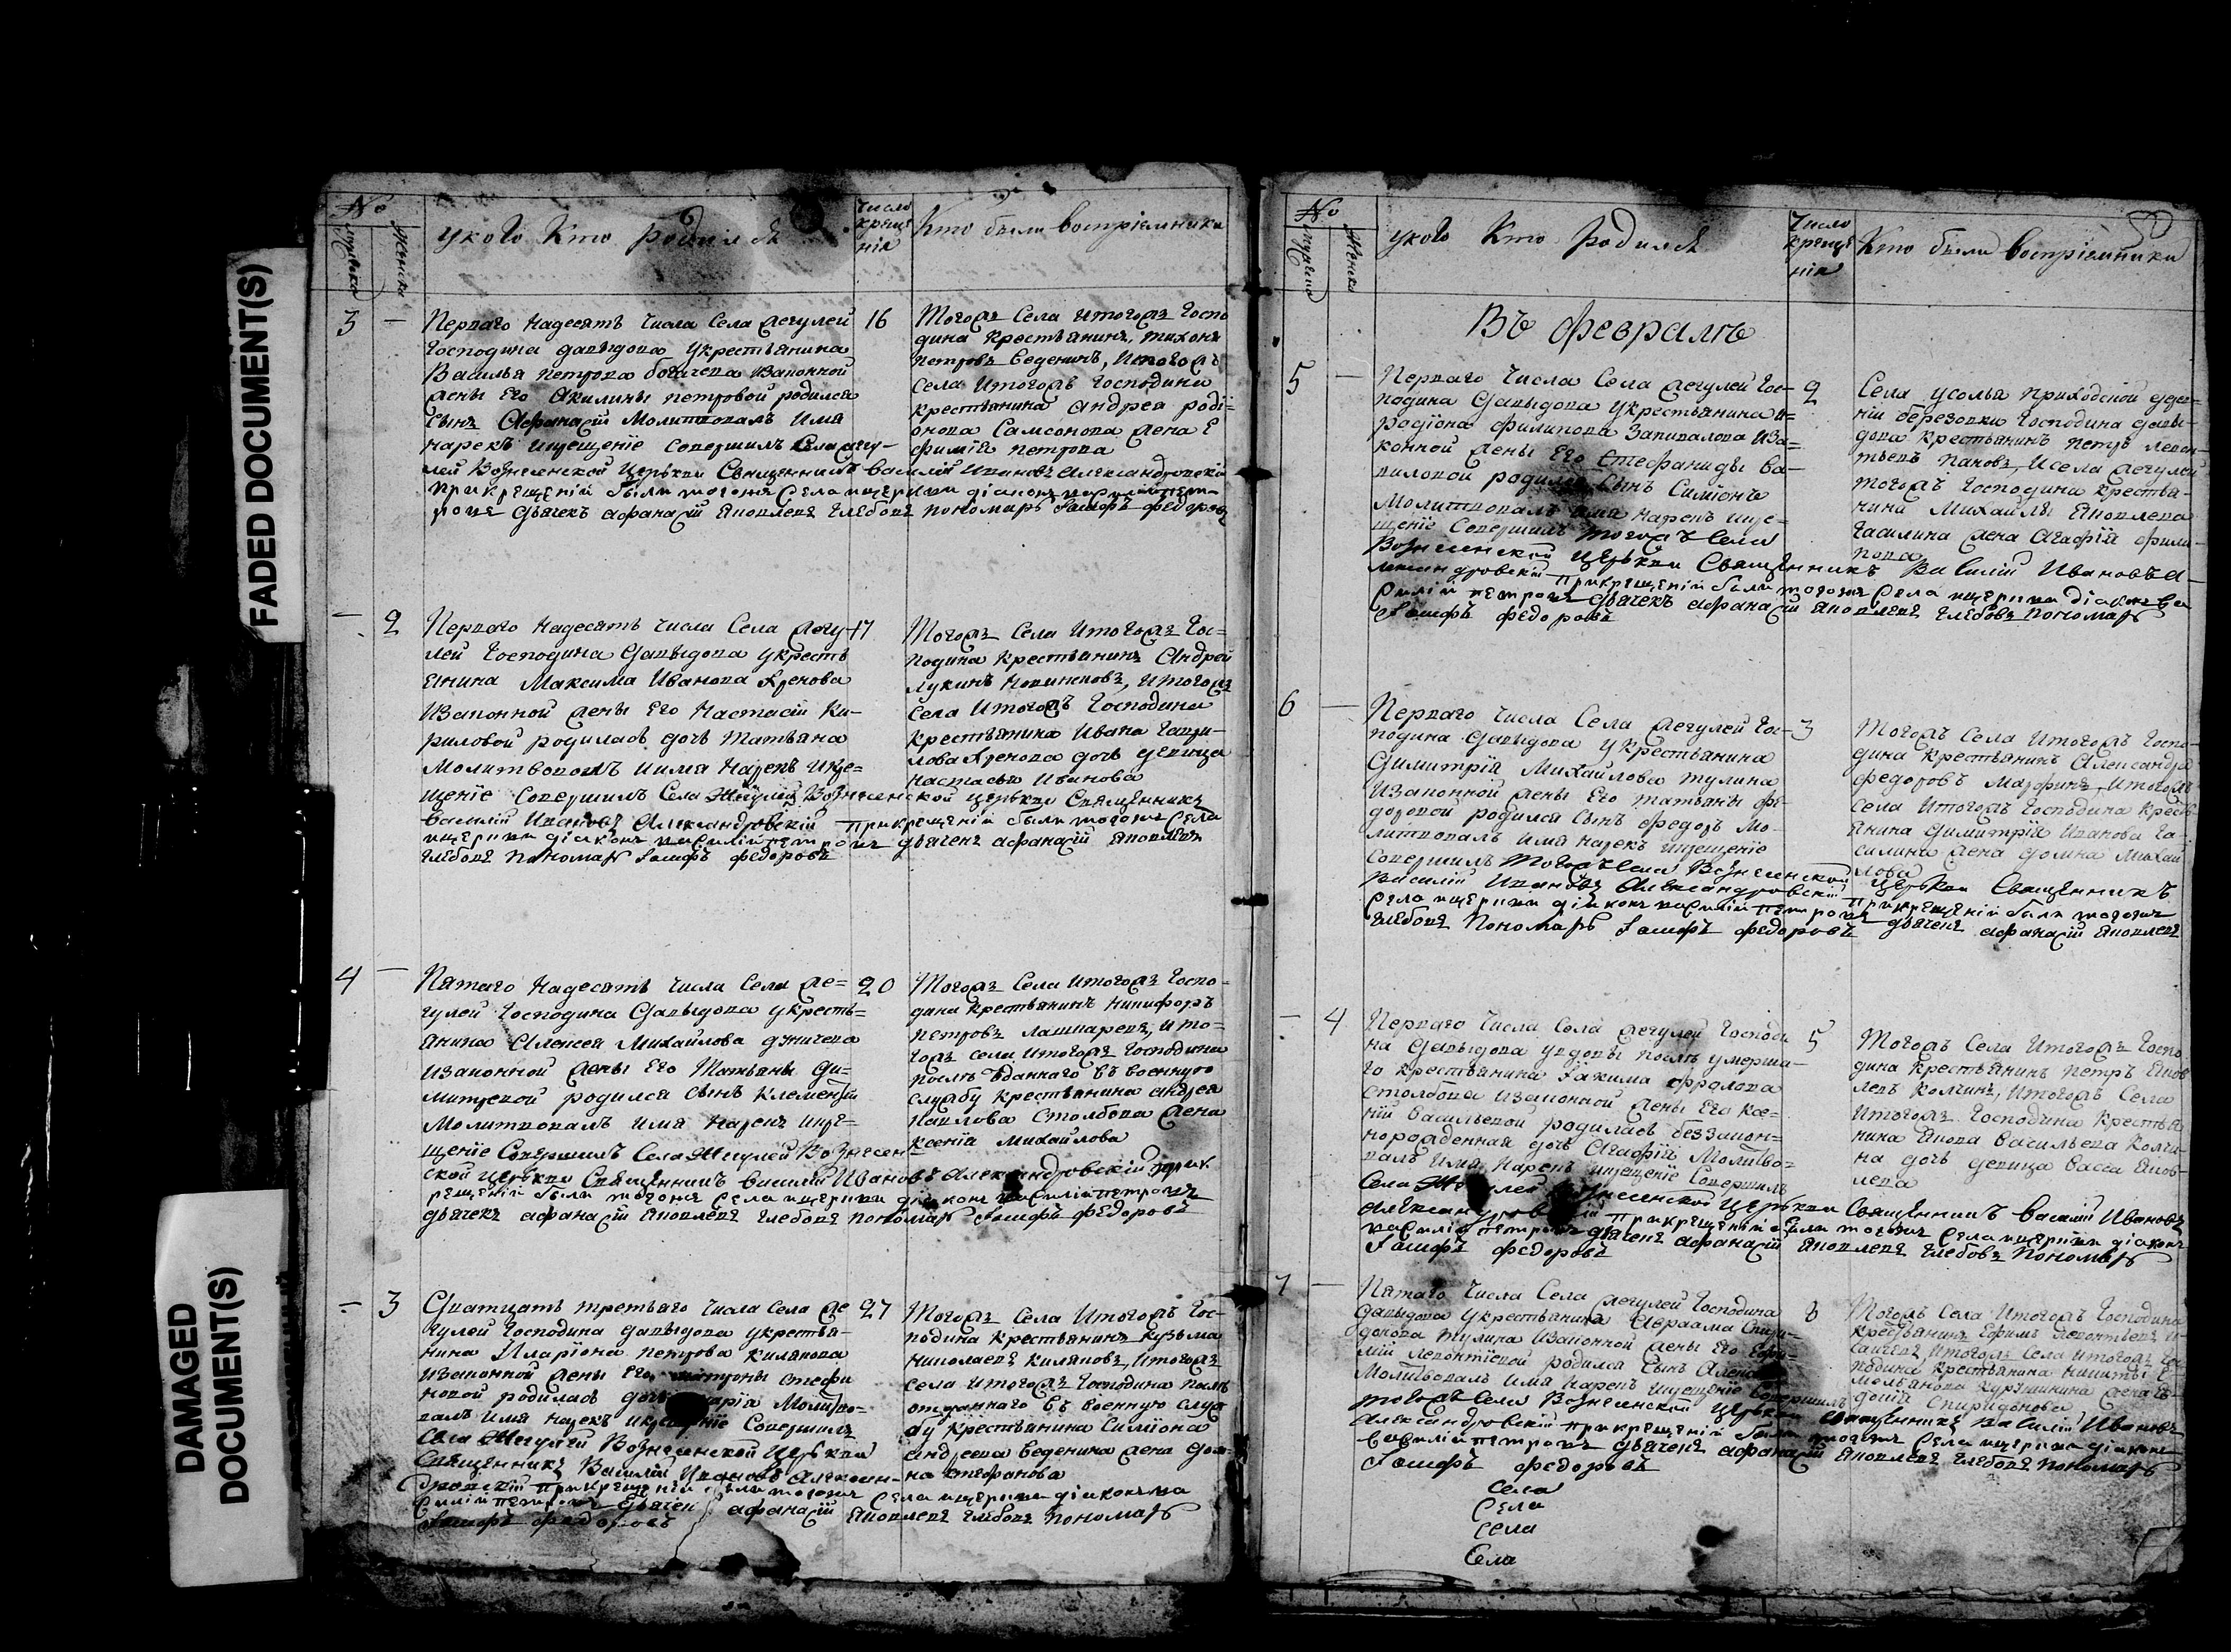 FADED DOCUMENT(S)
DAMAGED
DOCUMENT(S)
№
Женска
у кого Кто родился
Число
креще
нія
Кто были воспріемники
3 —
Перваго надесять числа Села Жегулей
Господина Давыдова у крестьянина
Василья Петрова Богачева Изаконной
жены Его Акилины Петровой родился
сынъ Афанасій Молитвовалъ Имя
нарекъ икрещеніе совершилъ Села Жегу-
лей Вознесенской Церькви Священникъ Василій Ивановъ Александровскій
прикрещеній были тогожъ Села ицеркви діаконъ василій пет-
ровъ дьячекъ афанасій Яковлевъ Глебовъ пономарь Іосифъ федоровъ
16
Тогожъ Села Итогожъ Госпо
дина Крестьянинъ Тихонъ
Петровъ Веденинъ, Итогожъ
Села Итогожъ Господина
крестьянина Андрея Роді-
онова Самсонова жена Е
фимія Петрова
— 2
Перваго надесять числа Села Жегу-
лей Господина Давыдова у кресть
янина Максима Иванова Яренова
Изаконной жены Его Настасіи Ки-
риловой родилась дочь Татьяна
Молитвовалъ иимя Нарекъ икре-
щеніе совершилъ Села Жегулей Вознесенской церькви Священникъ
Василій Ивановъ Александровскій прикрещеній были тогожъ Села
ицеркви діаконъ василій петровъ дьячекъ афанасій Яковлевъ
Глебовъ Пономарь Іосифъ федоровъ
17
Тогожъ Села Итогожъ Гос-
подина крестьянинъ Андрей
Лукинъ Новинсковъ, Итогожъ
Села Итогожъ Господина
Крестьянина Ивана Гаври-
лова Яренова дочь девица
Настасья Иванова
4 —
Пятаго Надесять числа Села Же-
гулей Господина Давыдова у кресть-
янина Алексея Михайлова
Изаконной жены Его Татьяны Ди-
митревой родился сынъ Клементій
Молитвовалъ имя Нарекъ икре-
щеніе Совершилъ Села Жегулей Вознесен
ской церькви Священникъ Василій Ивановъ Александровскій прик
рещеній были тогожъ Села ицеркви діаконъ василій петровъ
дьячекъ афанасій Яковлевъ Глебовъ пономарь Іосифъ федоровъ
20
Тогожъ Села Итогожъ Госпо-
дина крестьянинъ Никифоръ
Петровъ Лашкаревъ, Ито-
гожъ Села Итогожъ Господина
послѣ вданнаго въ военную
службу крестьянина Андрея
Павлова Столбова жена
Ксенія Михайлова
— 3
Дватцать третьяго числа Села Же
гулей Господина Давыдова у крестья-
нина Иларіона Петрова Килякова
изаконной жены Его Матроны Стефи
новой родилась дочь Марія Молитво-
валъ имя нарекъ икрещеніе Совершилъ
Села Жегулей Вознесенской Церькви
Священникъ Василій Ивановъ Алексан-
дровскій прикрещеній были тогожъ Села ицеркви діаконъ ва
силій петровъ дьячекъ афанасій Яковлевъ Глебовъ пономарь
Іосифъ федоровъ
27
Тогожъ Села Итогожъ Гос-
подина крестьянинъ Кузьма
Николаевъ Киляковъ, Итогожъ
села Итогожъ Господина послѣ
отданнаго въ военную служ
бу крестьянина Симіона
Андреева Веденина жена Дом-
на Стефанова
50
№
Женска
у кого Кто родился
Число
креще
нія
Кто были воспріемники
Въ февралѣ
5 —
Перваго числа Села Жегулей Гос-
подина Давыдова у крестьянина
Родіона Филипова Запивалова Иза-
конной жены Его Стефаниды Га-
виловой родился сынъ Симіонъ
Молитвовалъ имя нарекъ икре-
щеніе Совершилъ тогожъ Села
Вознесенской Церькви Священникъ Василій Ивановъ А-
лександровскій прикрещеній были тогожъ Села ицеркви діаконъ ва
силій петровъ дьячекъ афанасій Яковлевъ Глебовъ пономарь
Іосифъ федоровъ
2
Села Усолья приходской дере-
вни Березовки Господина Давы-
дова крестьянинъ Петръ Леон-
тьевъ Пановъ, Исела Жегулей
тогожъ Господина крестья-
нина Михайлы Яковлева
Гасилина жена Агафія Фили-
пова
6 —
Перваго числа Села Жегулей Гос-
подина Давыдова у крестьянина
Димитрія Михайлова Тулина
Изаконной жены Его Татьяны Фе-
доровой родился сынъ Федоръ Мо-
литвовалъ имя нарекъ икрещеніе
Совершилъ тогожъ Села Вознесенской Церькви Священникъ
Василій Ивановъ Александровскій прикрещеній были тогожъ
Села ицеркви діаконъ василій петровъ дьячекъ афанасій Яковлевъ
Глебовъ Пономарь Іосифъ федоровъ
3
Тогожъ Села Итогожъ Госпо-
дина крестьянинъ Александръ
Федоровъ Марфинъ, Итогожъ
села Итогожъ Господина кресть
янина Димитрія Иванова Га-
силина жена Домна Михай
лова
— 4
Перваго числа Села Жегулей Господи
на Давыдова у вдовы послѣ умерша-
го крестьянина Іакима Фролова
Столбова изаконной жены Его Ксе-
ніи Васильевой родилась беззакон-
норожденная дочь Агафія Молитво-
валъ имя Нарекъ икрещеніе Совершилъ
Села Жегулей Вознесенской Церькви Священникъ Василій Ивановъ
Александровскій прикрещеній были тогожъ Села ицеркви діаконъ
василій петровъ дьячекъ афанасій Яковлевъ Глебовъ пономарь
Іосифъ федоровъ
5
Тогожъ Села Итогожъ Госпо
дина крестьянинъ Петръ Яков
левъ Колчинъ, Итогожъ Села
Итогожъ Господина крестья
нина Якова Васильева Колчи-
на дочь девица Васса Яков-
лева
7 —
Пятаго числа Села Жегулей Господина
Давыдова у крестьянина Авраама Спири-
донова Тулина Изаконной жены Его Ефи-
міи Леонтіевой родился сынъ
Молитвовалъ имя Нарекъ икрещеніе Совершилъ
тогожъ Села Вознесенской Церькви Священникъ Василій Ивановъ
Александровскій прикрещеній были тогожъ Села ицеркви діаконъ
василій петровъ дьячекъ афанасій Яковлевъ Глебовъ пономарь
Іосифъ федоровъ
8
Тогожъ Села Итогожъ Господина
крестьянинъ Ефимъ Леонтьевъ
Итогожъ Села Итогожъ Гос
подина крестьянина Никиты Е-
мельянова Курушкина жена
Спиридонова
Села
Села
Села
Села